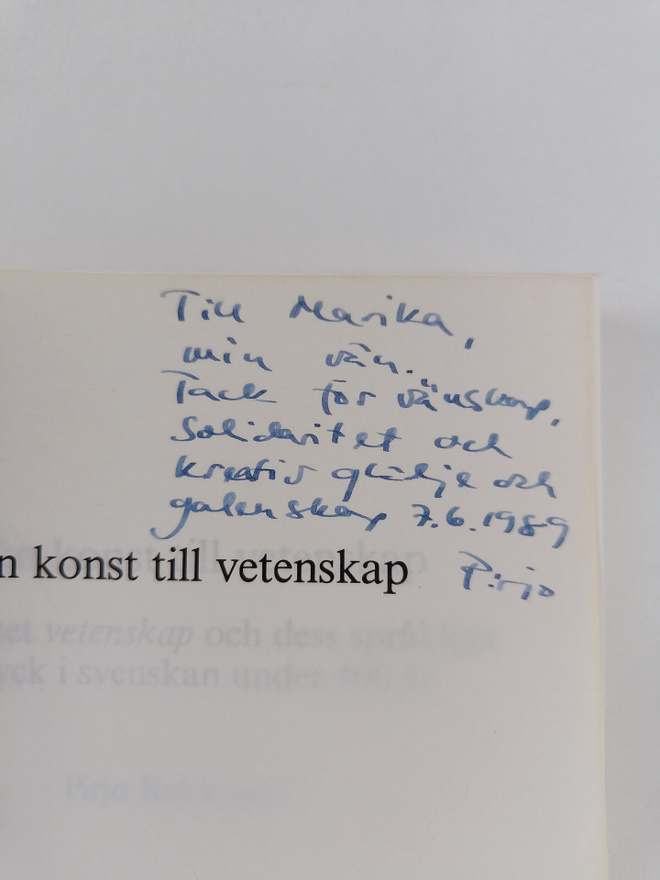 Till Marika,
min vän.
Tack för vänskap,
solidaritet och
kreativ glädje och
galenskap 7.6.1989
Pirjo
n konst till vetenskap
et vetenskap och dess
yck i svenskan under
Pirjo